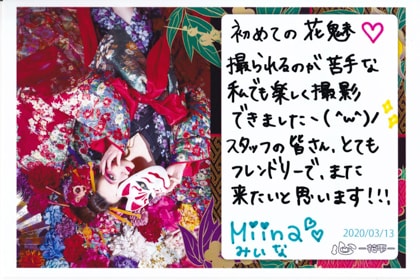 初めての花魁♡
撮られるのが苦手な
私でも楽しく撮影
できました、(^w^)ノ
スタッフの皆さん、とても
フレンドリーで、また
来たいと思います!!!
Miina♡
みいな
2020/03/13